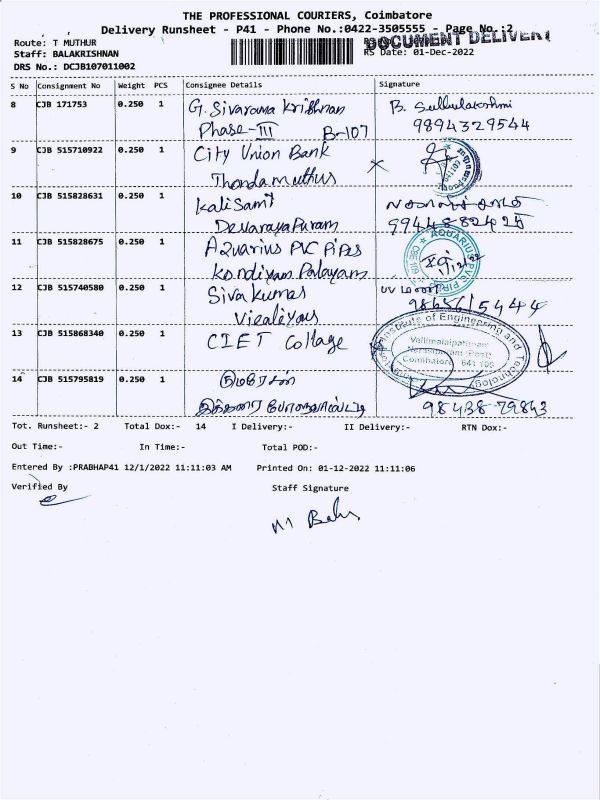 THE PROFESSIONAL COURIERS, Coimbatore
Delivery Runsheet - P41 - Phone No.:0422-3505555 - Page No.:2
DOCUMENT DELIVERY
Route: T MUTHUR
Staff: BALAKRISHNAN RS Date: 01-Dec-2022
DRS No.: DCJB107011002
S No Consignment No Weight PCS Consignee Details Signature
8 CJB 171753 0.250 1 G. Sivarama Krishnan B. Subbulakshmi
Phase-III B-107 9894329544
9 CJB 515710922 0.250 1 City Union Bank
Thondamuthur
10 CJB 515828631 0.250 1 Kalisami
Devarayapuram 9944882425
11 CJB 515828675 0.250 1 Aquarius PVC Pipes AQUARIUS PVC PIPE
Kondiyam Palayam
12 CJB 515740580 0.250 1 Sivakumar
9865615444
13 CJB 515868340 0.250 1 CIET Collage Institute of Engineering and Technology
Coimbatore 641 109
14 CJB 515795819 0.250 1 குமரேசன்
98438-79843
Tot. Runsheet:- 2 Total Dox:- 14 I Delivery:- II Delivery:- RTN Dox:-
Out Time:- In Time:- Total POD:-
Entered By :PRABHAP41 12/1/2022 11:11:03 AM Printed On: 01-12-2022 11:11:06
Verified By Staff Signature